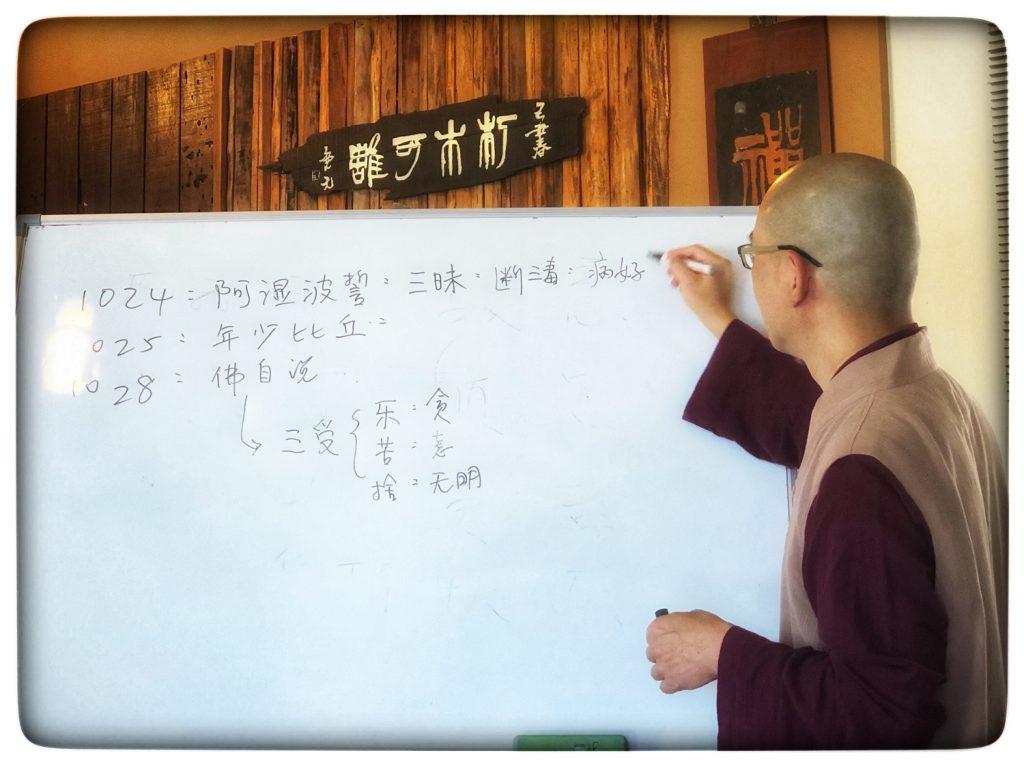 朽木可雕
禪
1024：阿湿波誓：三昧：断漏：病好
1025：年少比丘：
1028：佛自说
三受
乐：贪
苦：恚
捨：无明